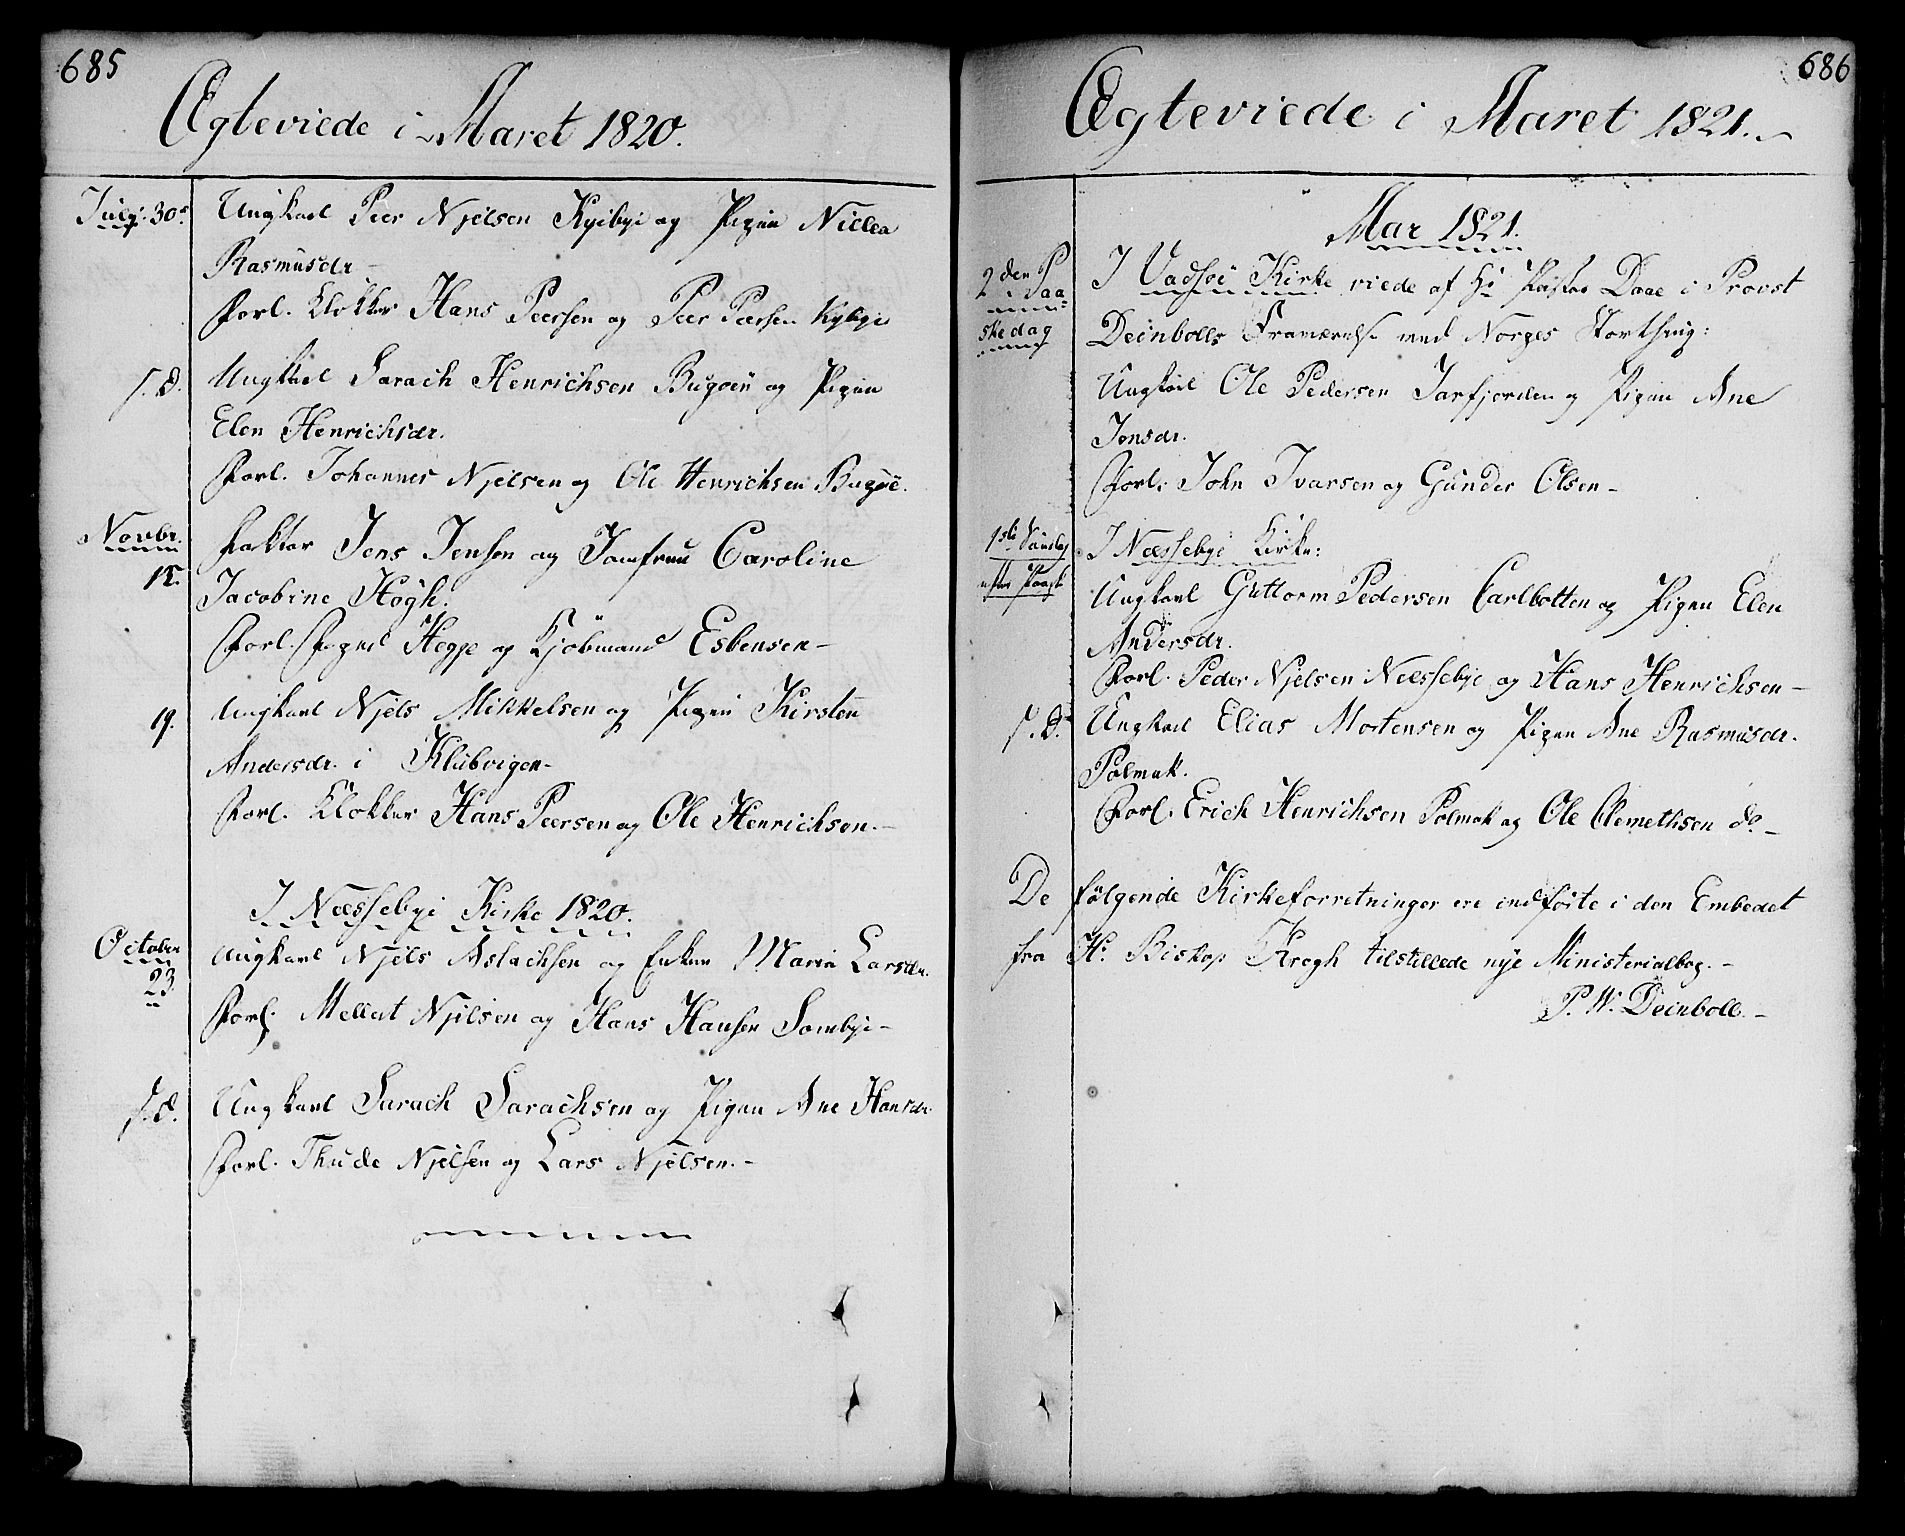 685
Ægteviede i Aaret 1820.
July 30te Ungkarl Peer Njelsen Kyibye og Pigen Nilla
Rasmusdr
Forl. Klokker Hans Peersen og Peer Peersen Kybye
s. d. Ungkarl Sarach Henrichsen Bugøen og Pigen
Elen Henrichsdr.
Forl. Johannes Njelsen og Ole Henrichsen Bugøe.
Novbr. 15. Faktor Jens Jensen og Jomfrue Caroline
Jacobine Høgh.
Forl. Foged Hegge og Kjøbmand Esbensen
19. Ungkarl Njels Mikkelsen og Pigen Kirsten
Andersdr. i Klubvigen
Forl. Klokker Hans Peersen og Ole Henrichsen.
I Næssebye Kirke 1820.
October 23 Ungkarl Njels Aslachsen og Enken Maria Larsdr.
Forl. Mellut Njelsen og Hans Hansen Sombye
s. d. Ungkarl Sarach Sarachsen og Pigen Ane Hansdr
Forl. Thude Njelsen og Lars Njelsen.
686
Ægteviede i Aaret 1821.
Aar 1821.
2den Paaskedag I Vadsøe Kirke viede af Hr Pastor Daae i Provst
Deinbolls Fraværelse ved Norges Storthing:
Ungkarl Ole Pedersen Jarfjorden og Pigen Ane
Jonsdr.
Forl. John Ivarsen og Gunder Olsen
1ste Søndag efter Paaske I Næssebye Kirke:
Ungkarl Guttorm Pedersen Carlbotten og Pigen Elen
Andersdr.
Forl. Peder Njelsen Næssebye og Hans Henrichsen
s. d. Ungkarl Elias Mortensen og Pigen Ane Rasmusdr.
Polmak.
Forl. Erich Henrichsen Polmak og Ole Clemethsen do
De følgende Kirkeforretninger ere indførte i den Embedet
fra Hr. Biskop Krogh tilstillede nye Ministerialbog.
P. W. Deinboll.